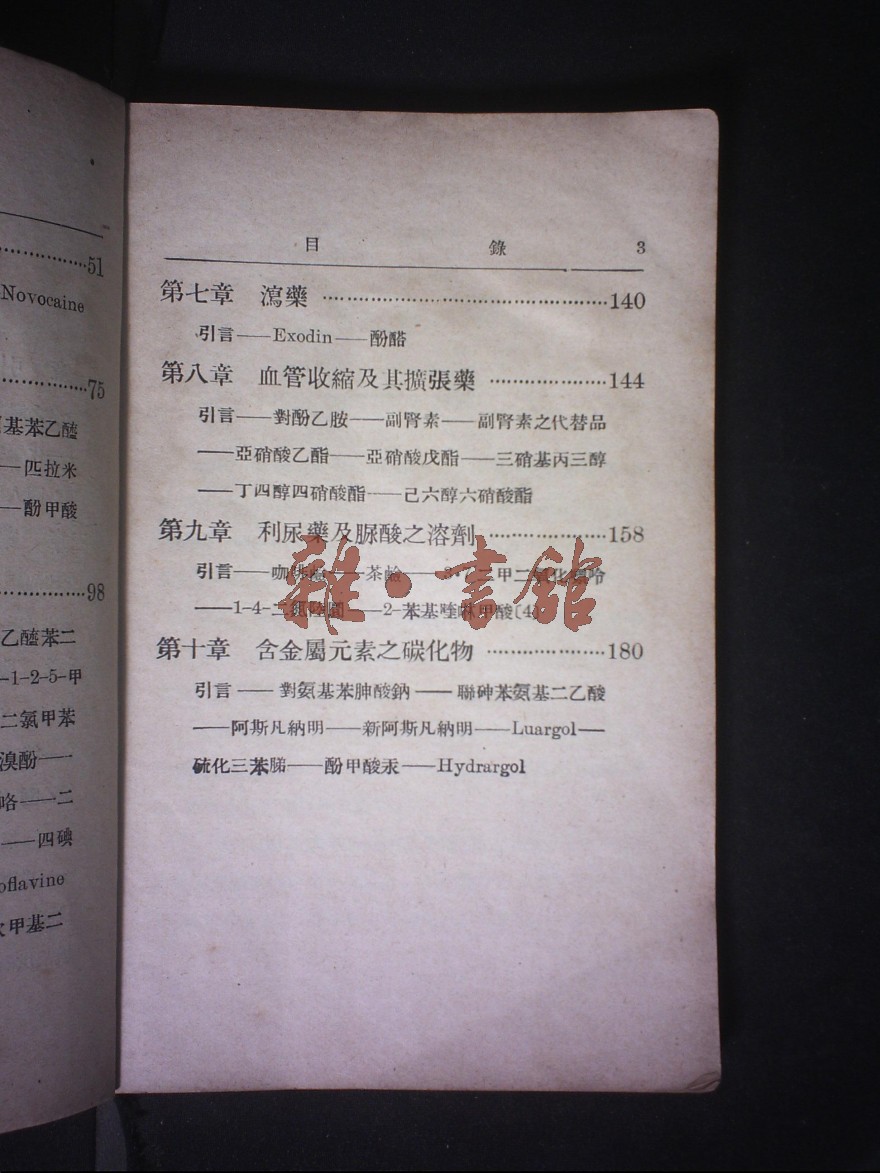 51
Novocaine
75
基苯乙醯
匹拉米
酚甲酸
98
乙醯苯二
-1-2-5-甲
二氯甲苯
溴酚——
咯——二
——四碘
oflavine
甲基二
目 錄 3
第七章 瀉藥 ……………………………………140
引言——Exodin——酚醛
第八章 血管收縮及其擴張藥 …………………144
引言——對酚乙胺——副腎素——副腎素之代替品
——亞硝酸乙酯——亞硝酸戊酯——三硝基丙三醇
——丁四醇四硝酸酯——己六醇六硝酸酯
第九章 利尿藥及脲酸之溶劑 …………………158
引言——咖啡鹼——茶鹼——3·7二甲二氧化嘌呤
——1-4-二氮陸圜——2-苯基喹啉甲酸〔4〕
雜·書館
第十章 含金屬元素之碳化物 …………………180
引言——對氨基苯胂酸鈉——聯砷苯氨基二乙酸
——阿斯凡納明——新阿斯凡納明——Luargol——
硫化三苯䏲——酚甲酸汞——Hydrargol